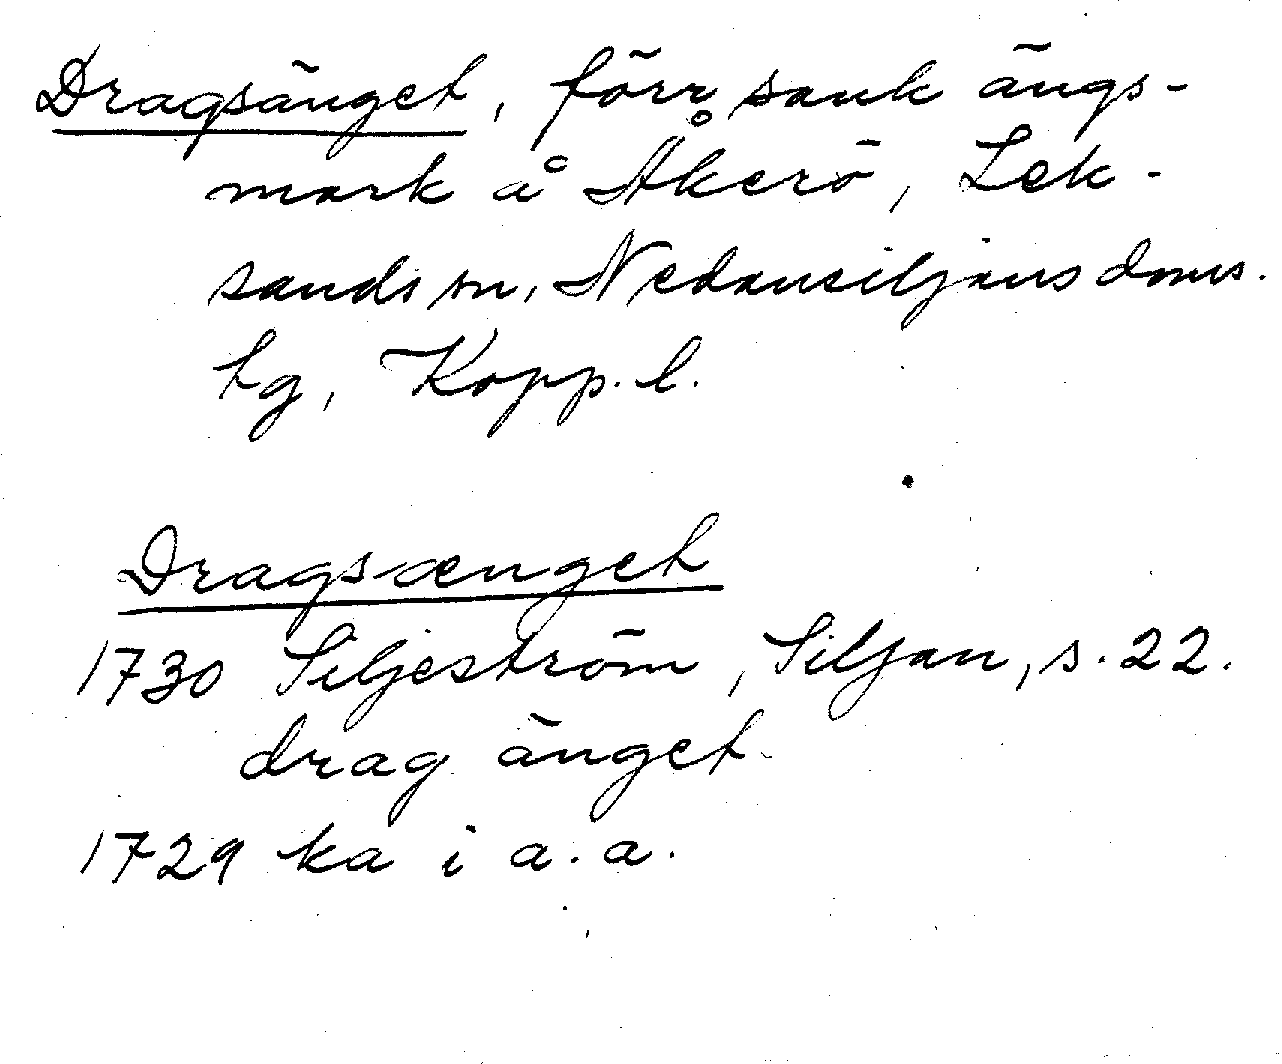 Dragsänget, förr sank ängs-
mark å Åkerö, Lek-
sands sn, Nedansiljans doms.
tg, Kopp. l.
Dragsænget
1730 Siljeström, Siljan, s. 22.
drag änget
1729 ka i a. a.